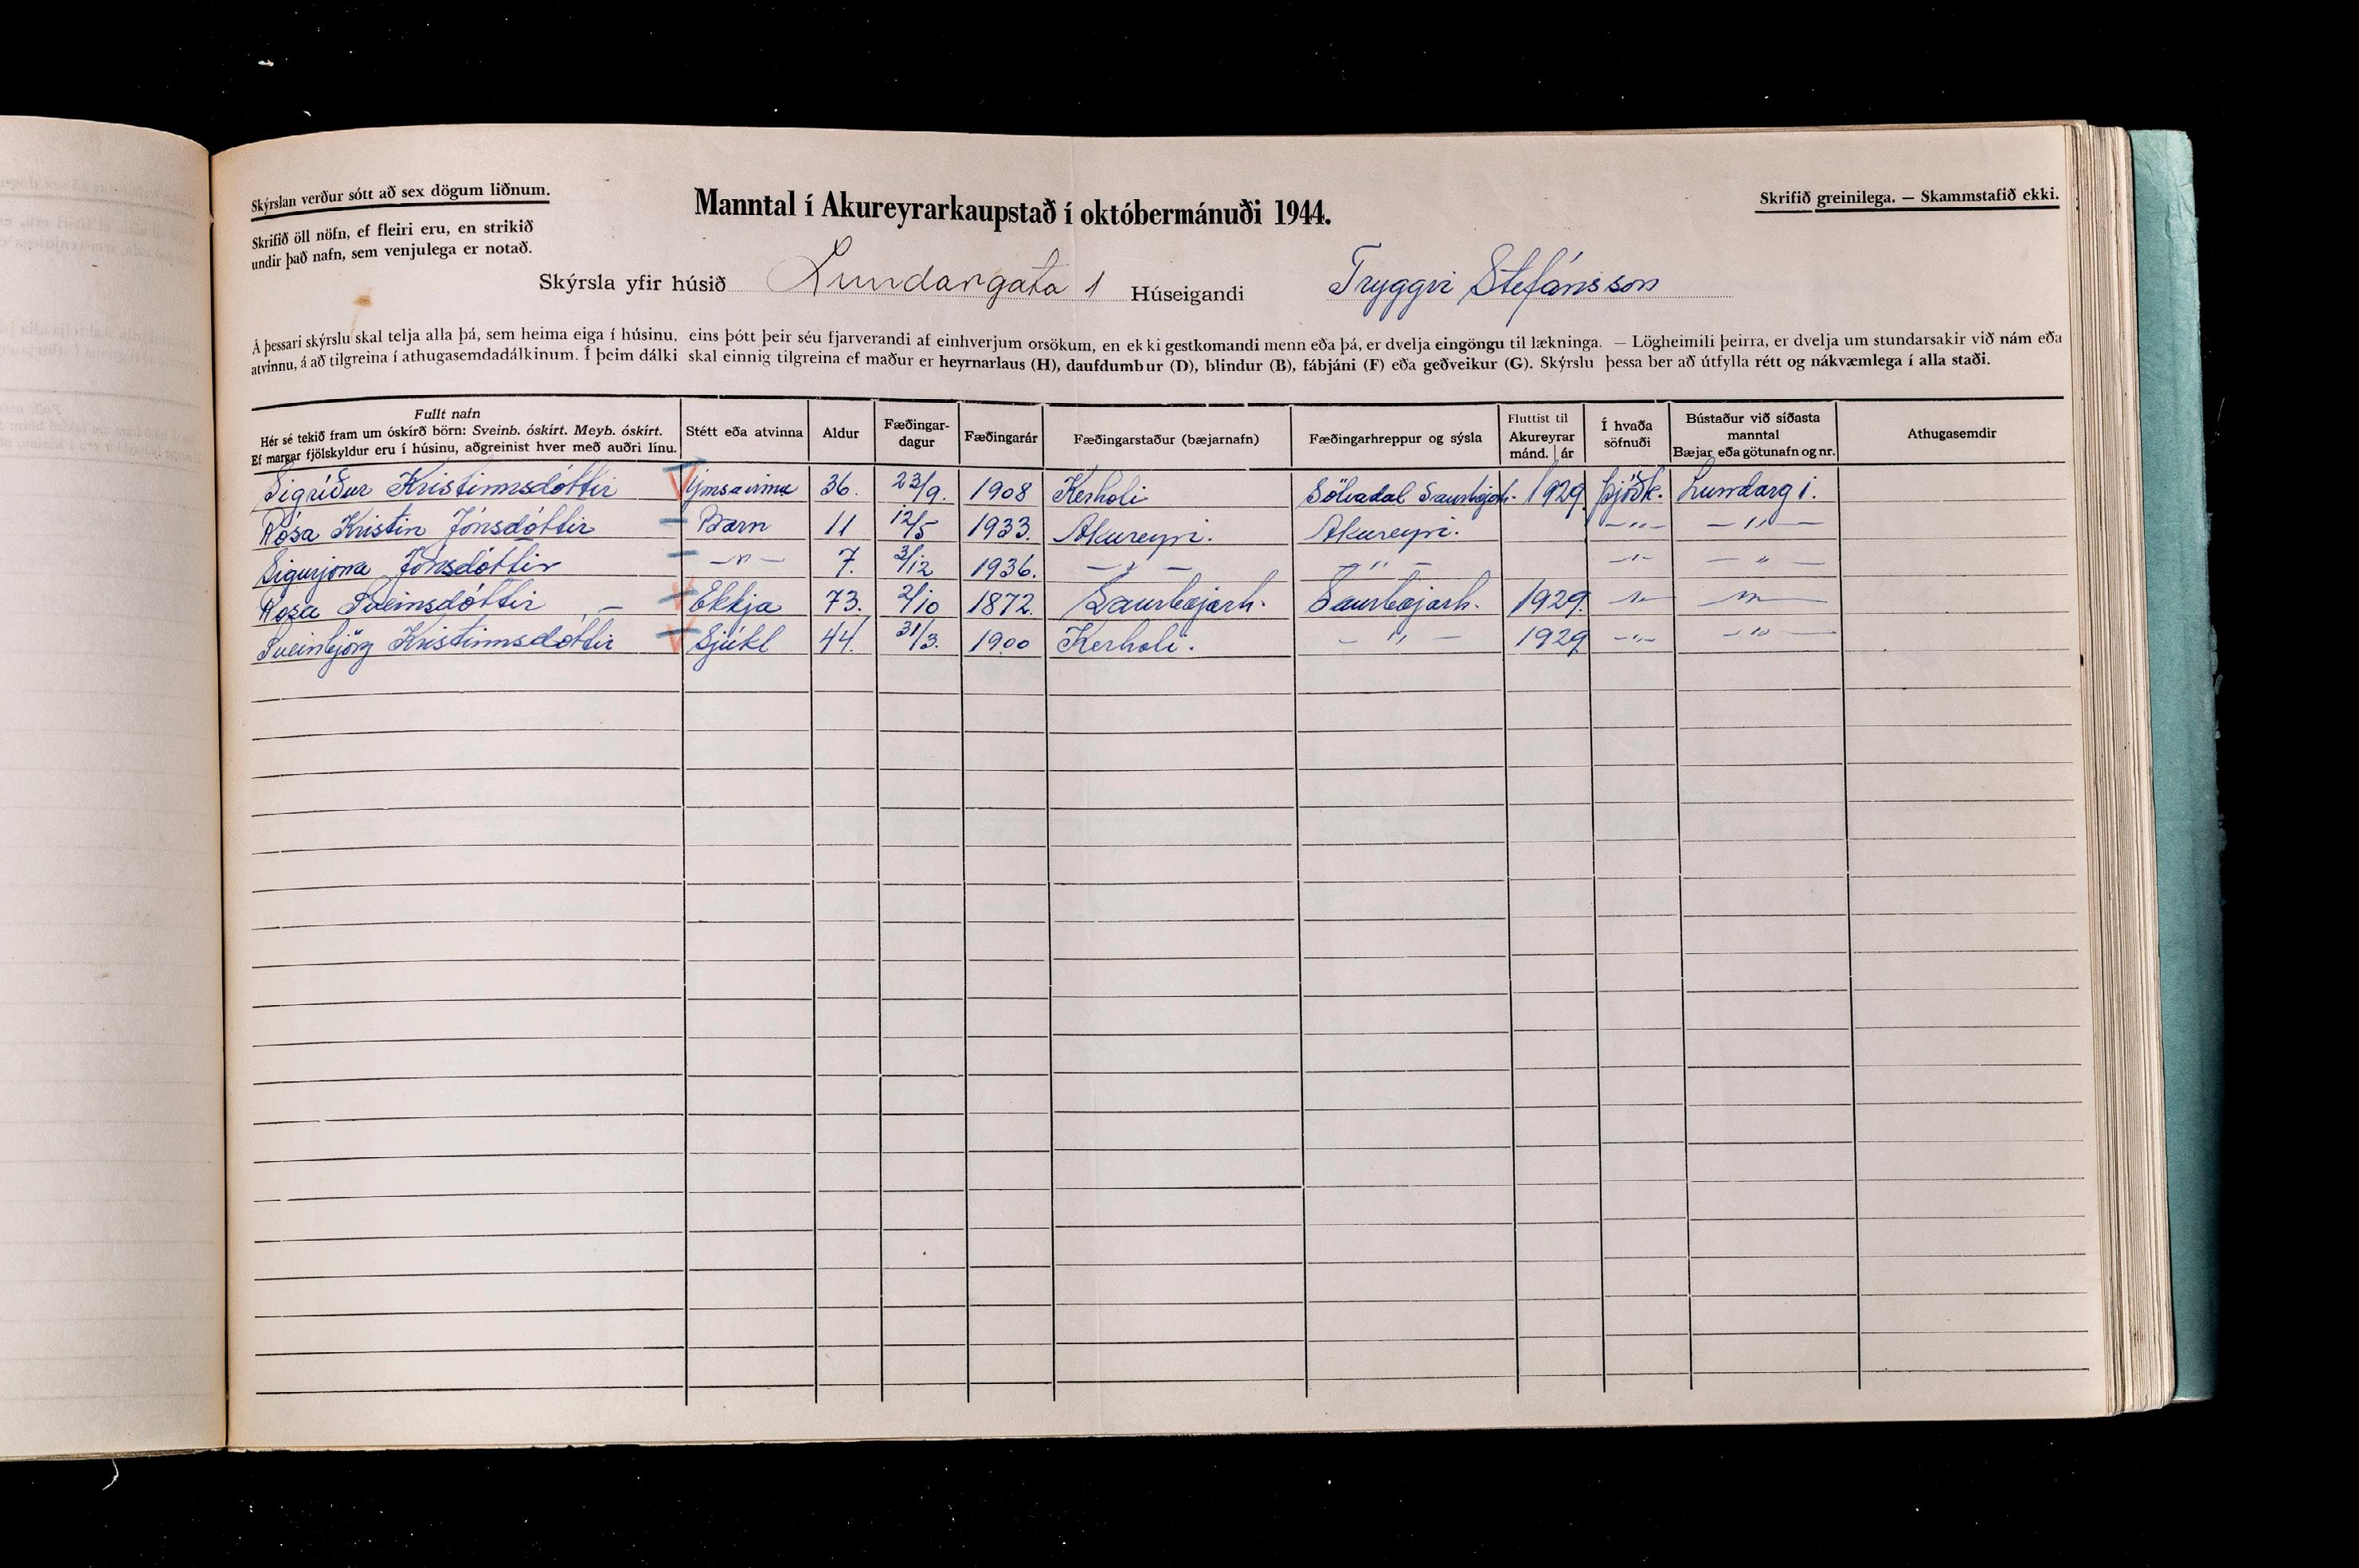 Skýrslan verður sótt að sex dögum liðnum.
Skrifið öll nöfn, ef fleiri eru, en strikið
undir það nafn, sem venjulega er notað.
Manntal í Akureyrarkaupstað í októbermánuði 1944.
Skrifið greinilega. — Skammstafið ekki.
Skýrsla yfir húsið Lundargata 1 Húseigandi Tryggvi Stefánsson
Á þessari skýrslu skal telja alla þá, sem heima eiga í húsinu, eins þótt þeir séu fjarverandi af einhverjum orsökum, en ekki gestkomandi menn eða þá, er dvelja eingöngu til lækninga. — Lögheimili þeirra, er dvelja um stundarsakir við nám eða
atvinnu, á að tilgreina í athugasemdadálkinum. Í þeim dálki skal einnig tilgreina ef maður er heyrnarlaus (H), daufdumbur (D), blindur (B), fábjáni (F) eða geðveikur (G). Skýrslu þessa ber að útfylla rétt og nákvæmlega í alla staði.
Fullt nafn
Hér sé tekið fram um óskírð börn: Sveinb. óskírt. Meyb. óskírt.
Ef margar fjölskyldur eru í húsinu, aðgreinist hver með auðri línu.
Stétt eða atvinna
Aldur
Fæðingar-
dagur
Fæðingarár
Fæðingarstaður (bæjarnafn)
Fæðingarhreppur og sýsla
Fluttist til
Akureyrar
mánd. ár
Í hvaða
söfnuði
Bústaður við síðasta
manntal
Bæjar eða götunafn og nr.
Athugasemdir
Sigríður Kristinnsdóttir Ýmsavinna 36. 23/9. 1908 Kerholi Sölvadal Saurbæjarh. 1929 þjóðk. Lundarg 1.
Rósa Kristin Jónsdóttir Barn 11 12/5 1933. Akureyri. Akureyri. — " — — " —
Sigurjona Jónsdóttir — " — 7. 3/12 1936. — " — — " — — " — — " —
Rosa Sveinsdóttir — Ekkja 73. 2/10 1872. Saurbæjarh. Saurbæjarh. 1929. — " — — " —
Sveinbjörg Kristinnsdóttir Sjúkl 44. 31/3. 1900 Kerholi. — " — 1929 — " — — " —